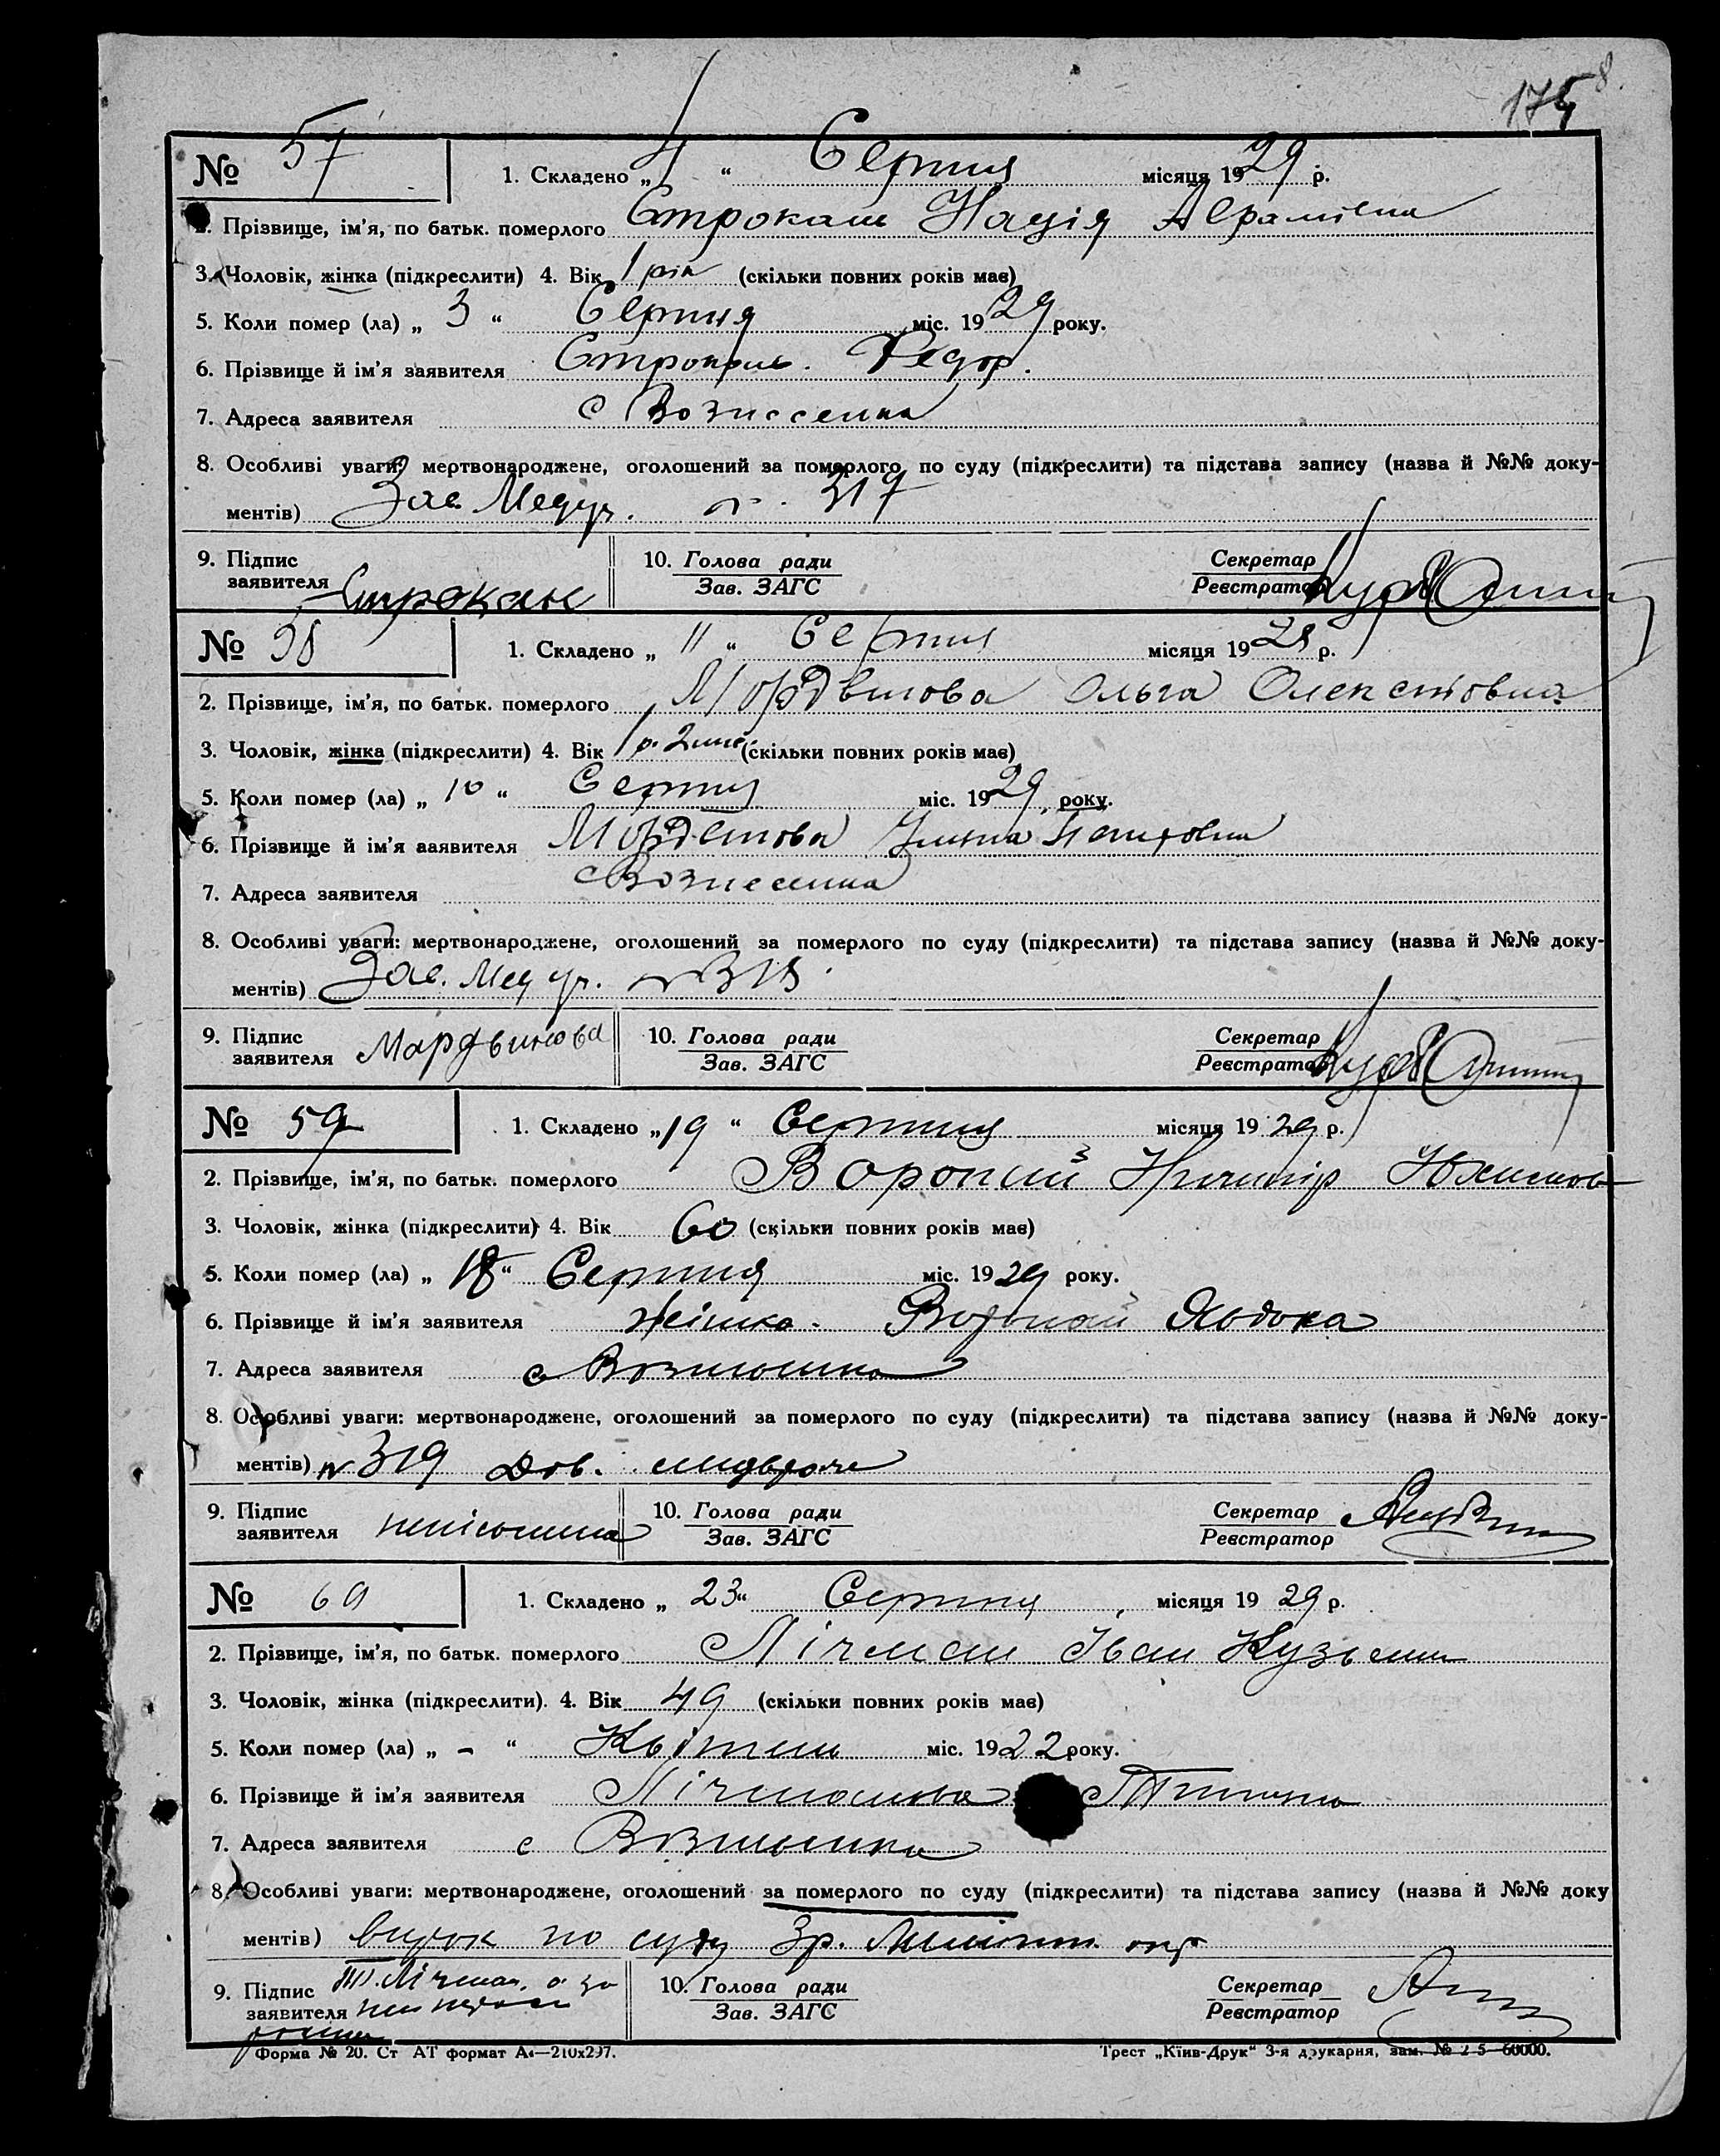 175 8.
№ 57 1. Складено „ 4 “ Серпня місяця 19 29 р.
2. Прізвище, ім'я, по батьк. померлого Строкань
3. Чоловік, жінка (підкреслити) 4. Вік 1 рік (скільки повних років має)
5. Коли помер (ла) „ 3 “ Серпня міс. 19 29 року.
6. Прізвище й ім'я заявителя Строкань Федор.
7. Адреса заявителя с Вознесенка
8. Особливі уваги: мертвонароджене, оголошений за померлого по суду (підкреслити) та підстава запису (назва й №№ доку-
ментів) 317
9. Підпис заявителя Строкань 10. Голова ради Зав. ЗАГС Секретар Реєстратор
№ 58 1. Складено „ 11 “ Серпня місяця 19 29 р.
2. Прізвище, ім'я, по батьк. померлого Мордвинова Ольга
3. Чоловік, жінка (підкреслити) 4. Вік 1 р. 2 міс. (скільки повних років має)
5. Коли помер (ла) „ 10 “ Серпня міс. 19 29 року.
6. Прізвище й ім'я заявителя
7. Адреса заявителя с Вознесенка
8. Особливі уваги: мертвонароджене, оголошений за померлого по суду (підкреслити) та підстава запису (назва й №№ доку-
ментів) 318
9. Підпис заявителя Мардвинова 10. Голова ради Зав. ЗАГС Секретар Реєстратор
№ 59 1. Складено „ 19 “ Серпня місяця 19 29 р.
2. Прізвище, ім'я, по батьк. померлого
3. Чоловік, жінка (підкреслити) 4. Вік 60 (скільки повних років має)
5. Коли помер (ла) „ 18 “ Серпня міс. 19 29 року.
6. Прізвище й ім'я заявителя жінка. Явдоха
7. Адреса заявителя с Вознесенка
8. Особливі уваги: мертвонароджене, оголошений за померлого по суду (підкреслити) та підстава запису (назва й №№ доку-
ментів) № 319 Дов.
9. Підпис заявителя неписьмена 10. Голова ради Зав. ЗАГС Секретар Реєстратор
№ 60 1. Складено „ 23 “ Серпня місяця 19 29 р.
2. Прізвище, ім'я, по батьк. померлого Лічман Іван Кузьмич
3. Чоловік, жінка (підкреслити). 4. Вік 49 (скільки повних років має)
5. Коли помер (ла) „ - “ Квітень міс. 19 22 року.
6. Прізвище й ім'я заявителя
7. Адреса заявителя с Вознесенка
8. Особливі уваги: мертвонароджене, оголошений за померлого по суду (підкреслити) та підстава запису (назва й №№ доку
ментів) по суду
9. Підпис заявителя Лічман 10. Голова ради Зав. ЗАГС Секретар Реєстратор
Форма № 20. Ст АТ формат А4—210х297. Трест „Київ-Друк“ 3-я друкарня, зам. № 2 5—60000.